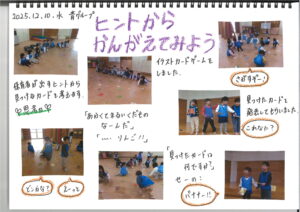 2025.12.10.水 青グループ
ヒントから
かんがえてみよう
保育者が出すヒントから
見つけるカードを考えます。
イラストカードゲームを
しました。
さがすぞー!
「あかくてまるいくだもの
なーんだ」
「…… りんご!!」
見つけたカードを
発表してもらいました。
これなぁに?
どこかな?
えーっと
「見つけたカードは
何ですか?」
せーの:
バナナー!!